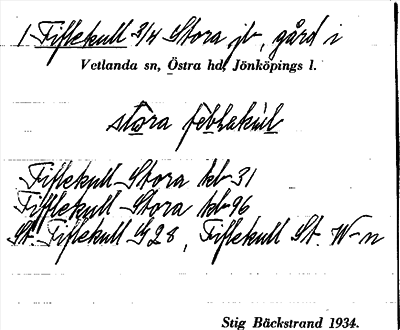 1 Fiflekull 3/4 Stora, jb, gård i
Vetlanda sn, Östra hd, Jönköpings l.
stora
Fiflekull Stora kb 31
Fiflekull Stora kb 96
St. Fiflekull G 28, Fiflekull St. W-n
Stig Bäckstrand 1934.